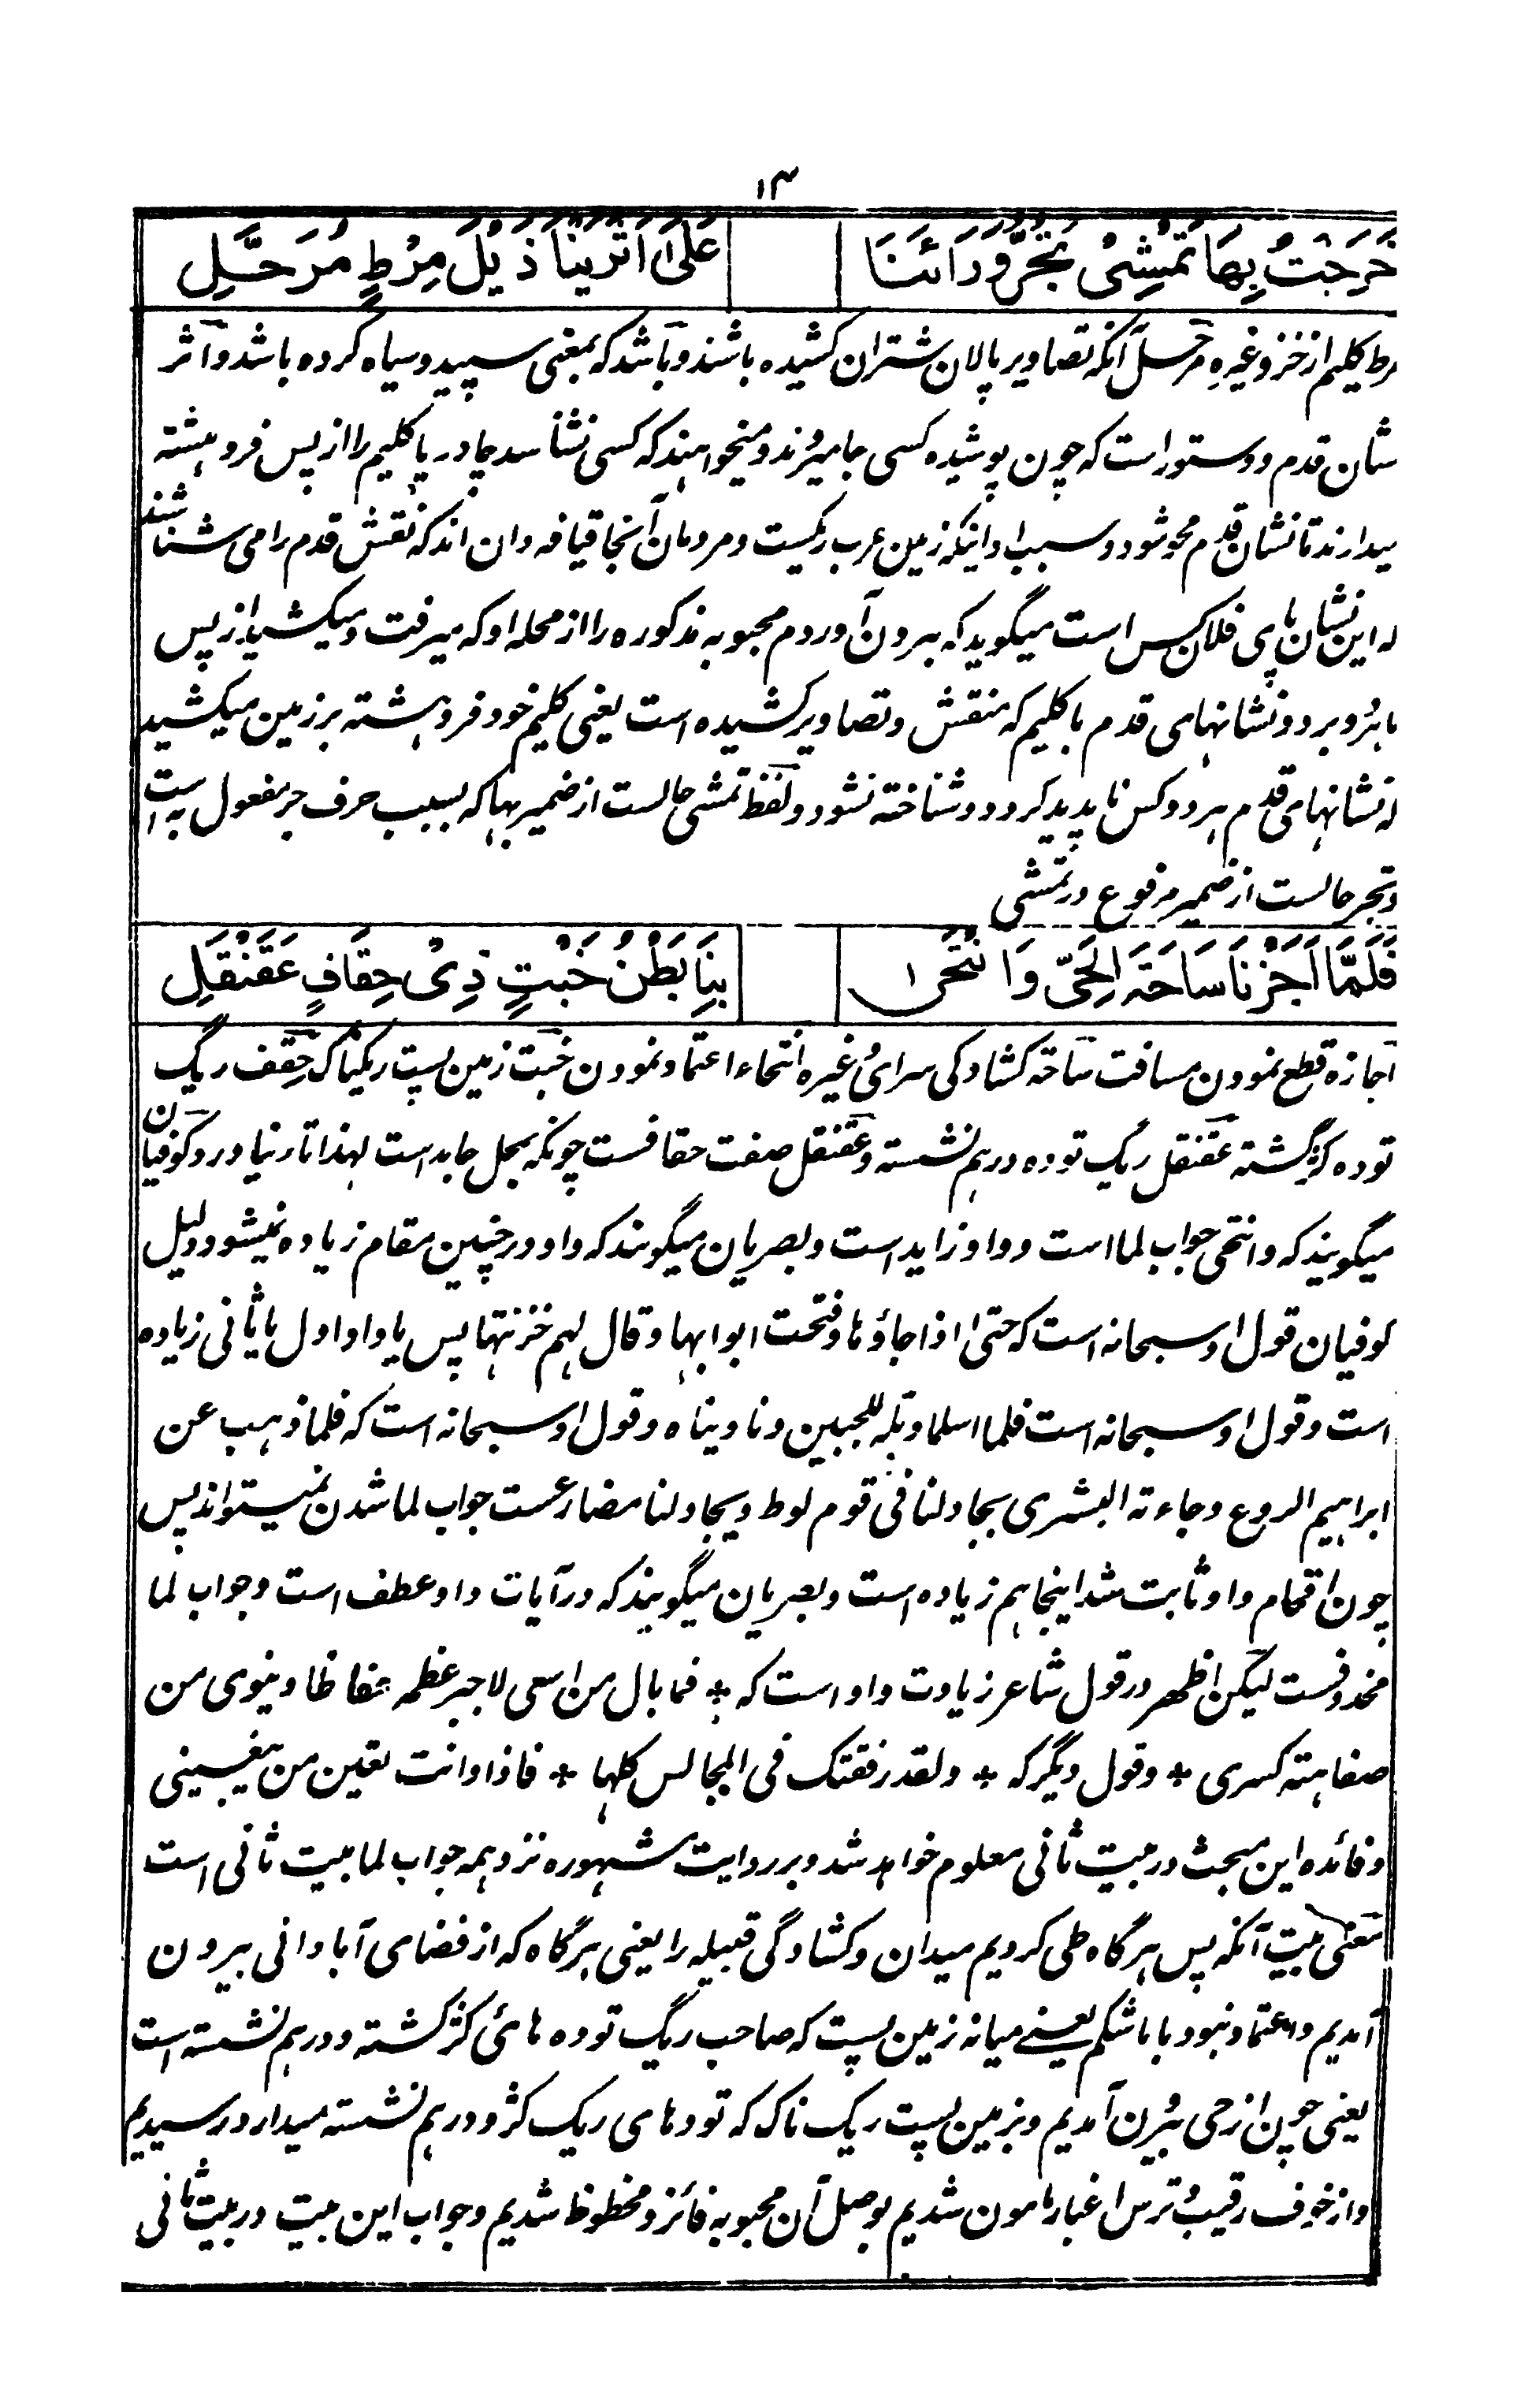 ۱۳
خَرَجْتُ بِهَا تَمْشِیْ تَجُرُّ وَرَائَنَا
عَلٰی اَثَرَیْنَا ذَیْلَ مِرْطٍ مُرَحَّلِ
مرط گلیم از خز و غیره مرحل آنکه تصاویر پالان شتران کشیده باشند و باشد که بمعنی سپید و سیاه کرده باشد و اثر
نشان قدم و دستور است که چون پوشیده کسی جا میروند و میخواهند که کسی نشناسد چادر یا گلیم را از پس فرو هشته
میدارند تا نشان قدم محو شود و سبب او اینکه زمین عرب ریگیست و مردمان آنجا قیافه دان اند که نقش قدم را می شناسند
که این نشان پای فلان کس است میگوید که بیرون آوردم محبوبه مذکوره را از محله او که میرفت و میکشید از پس
ما هر دو برد و نشانهای قدم ما گلیم که منقش و تصاویر کشیده است یعنی گلیم خود فرو هشته بر زمین میکشید
که نشانهای قدم هر دو کس ناپدید گردد و شناخته نشود و لفظ تمشی حالست از ضمیر بها که بسبب حرف جر مفعول به است
و تجر حالست از ضمیر مرفوع در تمشی
فَلَمَّا اَجَزْنَا سَاحَةَ الْحَیِّ وَانْتَحٰی
بِنَا بَطْنُ خَبْتٍ ذِیْ حِقَافٍ عَقَنْقَلِ
اجازه قطع نمودن مسافت ساحة کشادگی سرای و غیره انتحاء اعتماد نمودن خبت زمین پست ریگناک حقف ریگ
توده کژ گشته عقنقل ریگ توده درهم نشسته و عقنقل صفت حقافست چونکه بجل جامد است لهذا تا نیاورد و کوفیان
میگویند که وانتحی جواب لما است و واو زاید است و بصریان میگویند که واو در چنین مقام زیاده نمیشود و دلیل
کوفیان قول او سبحانه است که حتی اذا جاؤها و فتحت ابوابها و قال لهم خزنتها پس یا واو اول یا ثانی زیاده
است و قول او سبحانه است فلما اسلما و تله للجبین و نادیناه و قول او سبحانه است که فلما ذهب عن
ابراهیم الروع و جاءته البشری یجادلنا فی قوم لوط و یجادلنا مضارعست جواب لما شدن نمیتواند پس
چون اقحام واو ثابت شد اینجا هم زیاده است و بصریان میگویند که در آیات واو عطف است و جواب لما
محذوفست لیکن اظهر در قول شاعر زیادت واو است که * فما بال من اسعی لاجبر عظمه حفاظا و ینوی من
سفاهته کسری * و قول دیگر که * و لقد رفقتک فی المجالس کلها * فاذا و انت تعین من یبغینی
و فائده این مبحث در بیت ثانی معلوم خواهد شد و بر روایت مشهوره نزد همه جواب لما بیت ثانی است
معنی بیت آنکه پس هرگاه طی کردیم میدان و کشادگی قبیله را یعنی هرگاه که از فضای آبادانی بیرون
آمدیم و اعتماد نمود با ما شکم یعنے میانه زمین پست که صاحب ریگ توده های کژ گشته و درهم نشسته است
یعنی چون از حی بیرون آمدیم و بزمین پست ریگ ناک که تودهای ریگ کژ و درهم نشسته میدارد رسیدیم
و از خوف رقیب و ترس اغیار مامون شدیم بوصل آن محبوبه فائز و محظوظ شدیم و جواب این بیت در بیت ثانی